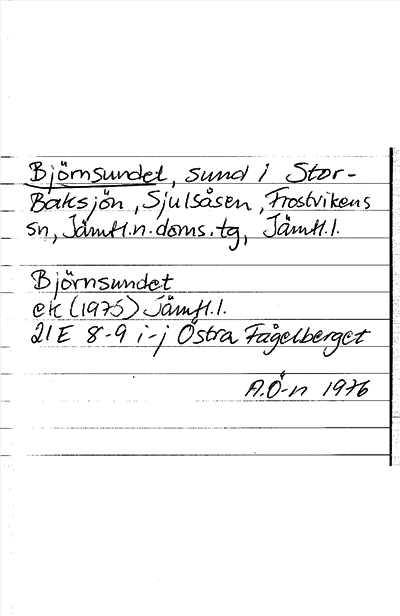 Björnsundet, sund i Stor-
Baksjön, Sjulsåsen, Frostvikens
sn, Jämtl.n.doms.tg, Jämtl.l.
Björnsundet
ek (1975) Jämtl.l.
21 E 8-9 i-j Östra Fågelberget
A.Ö-n 1976